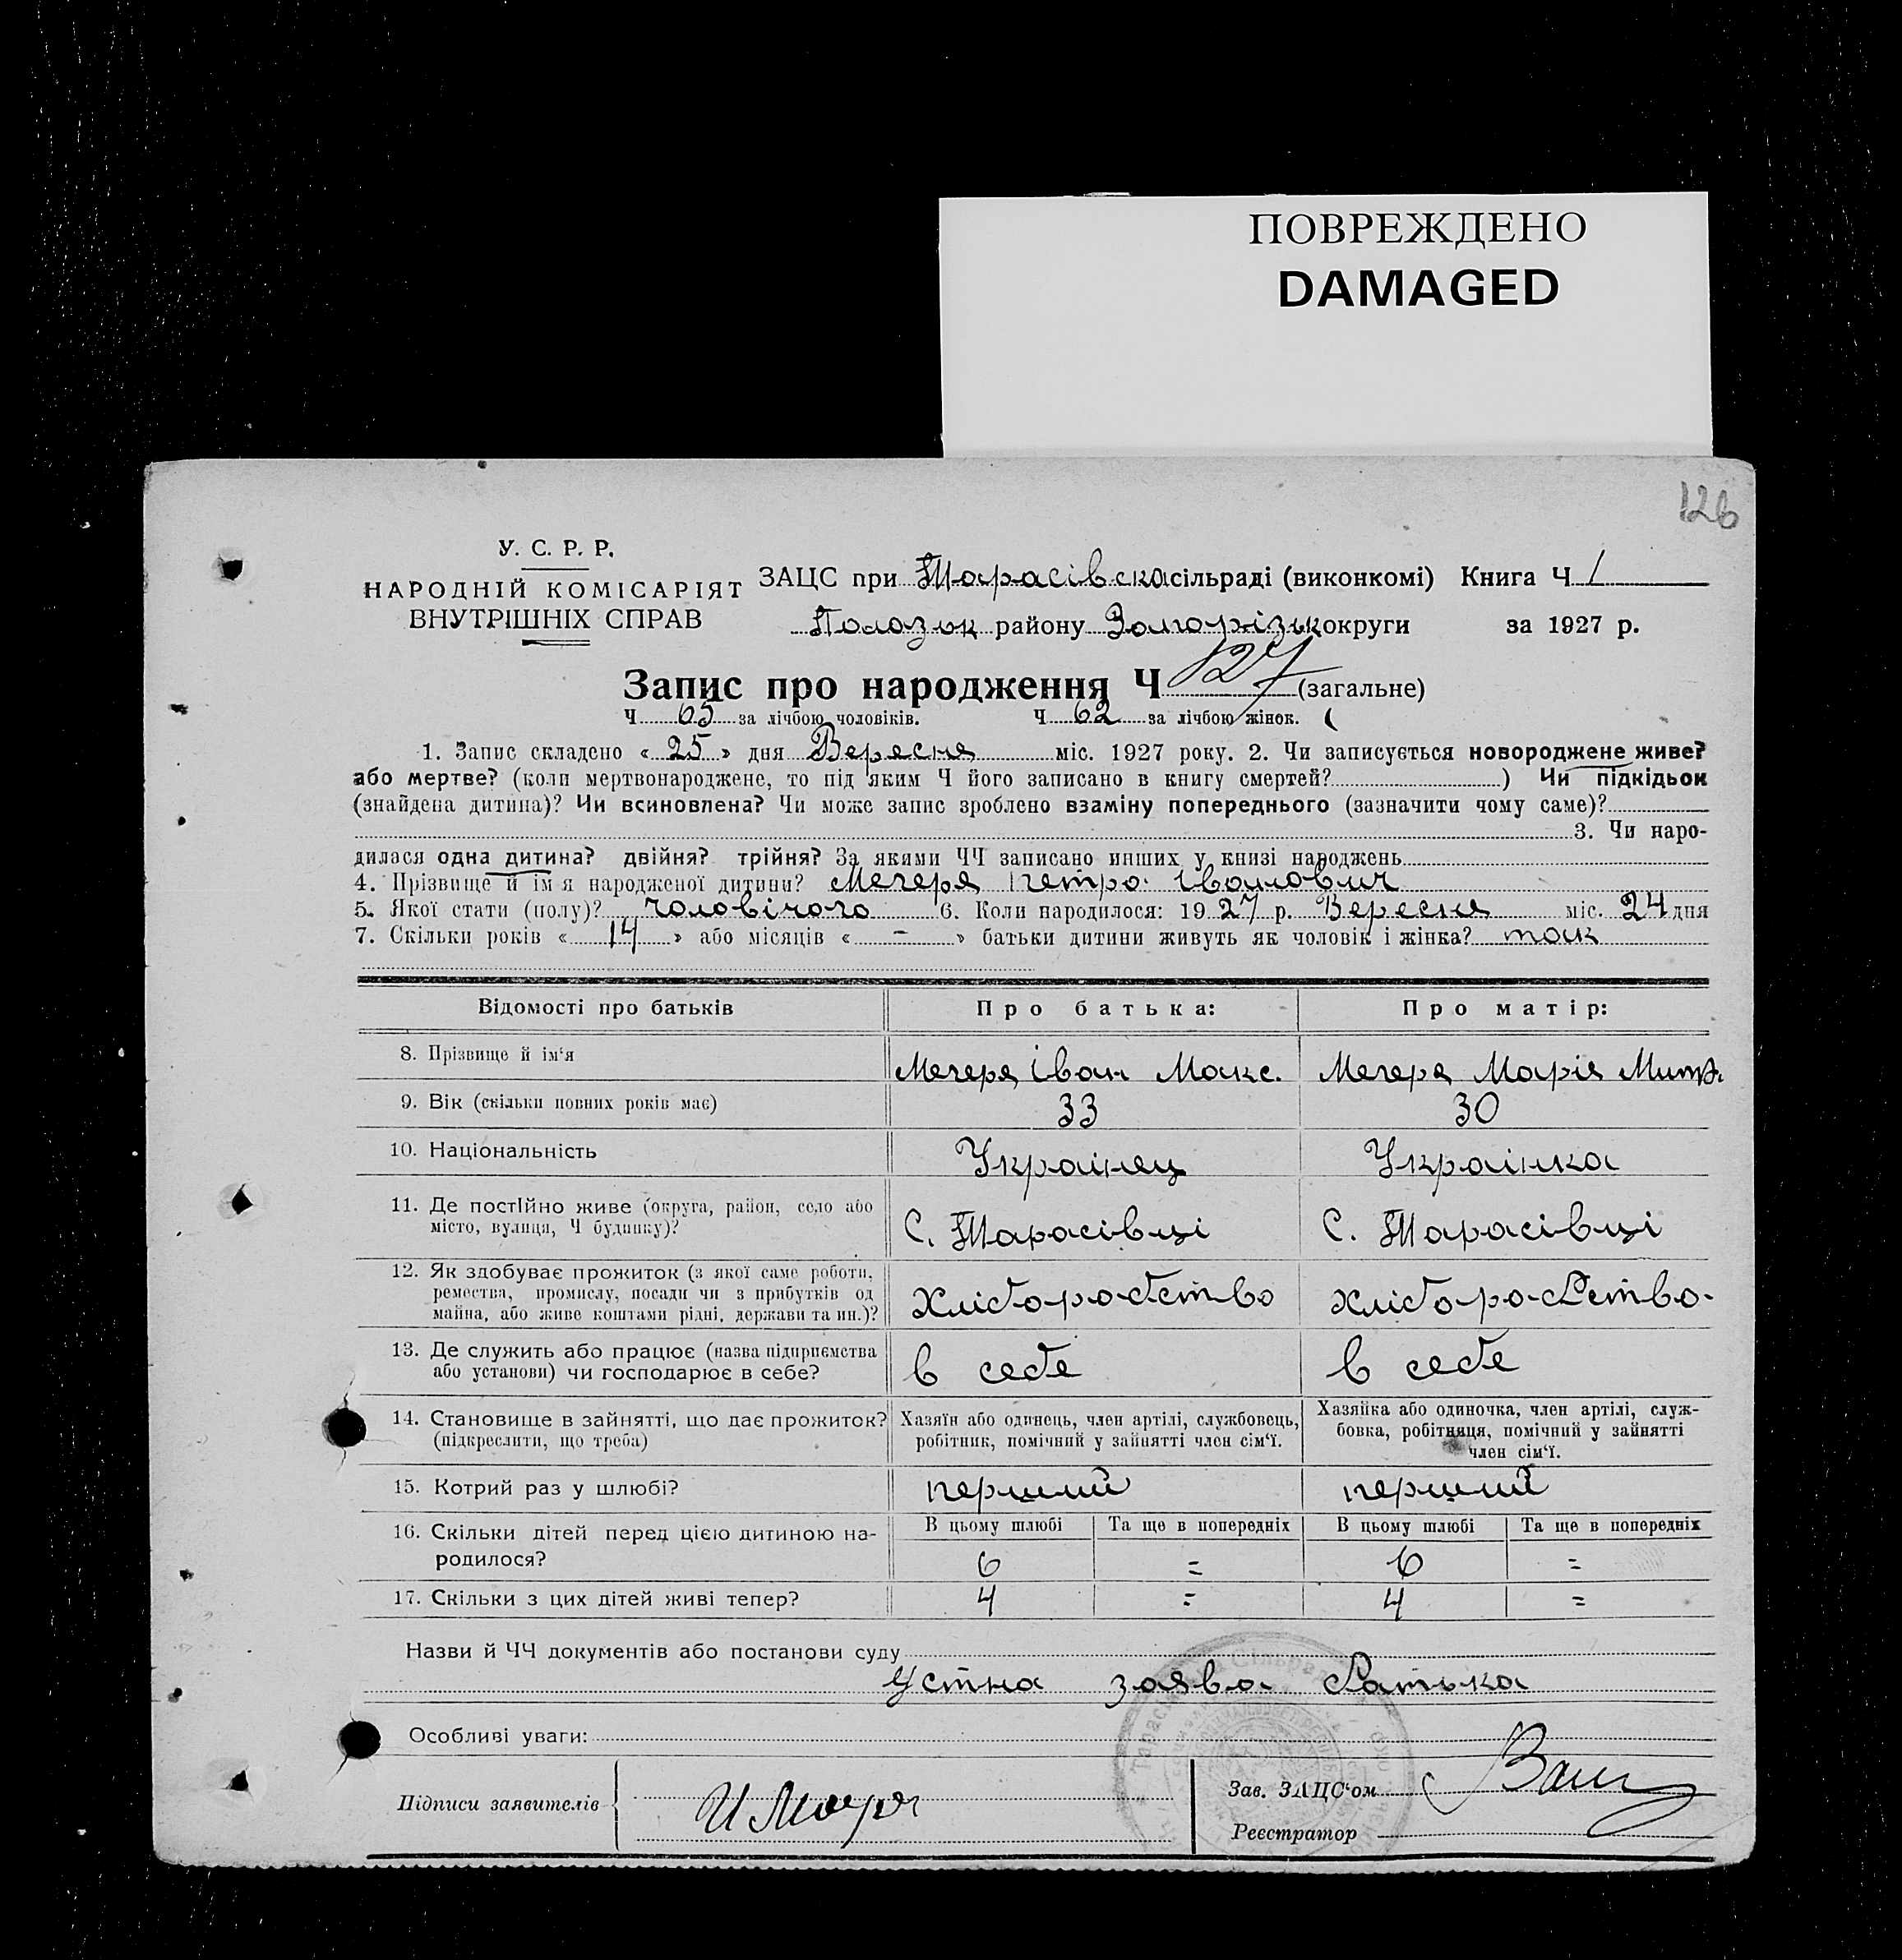 ПОВРЕЖДЕНО
DAMAGED
126
У. С. Р. Р.
НАРОДНІЙ КОМІСАРІЯТ
ВНУТРІШНІХ СПРАВ
ЗАЦС при Тарасівска сільраді (виконкомі) Книга Ч 1
району округи за 1927 р.
Запис про народження Ч 127 (загальне)
Ч 65 за лічбою чоловіків. Ч 62 за лічбою жінок.
1. Запис складено « 25 » дня Вересня міс. 1927 року. 2. Чи записується новороджене живе?
або мертве? (коли мертвонароджене, то під яким Ч його записано в книгу смертей? ) Чи підкідьок
(знайдена дитина)? Чи всиновлена? Чи може запис зроблено взаміну попереднього (зазначити чому саме)?
3. Чи наро-
дилася одна дитина? двійня? трійня? За якими ЧЧ записано инших у книзі народжень
4. Прізвище й ім'я народженої дитини? Мегеря Петро Іванович
5. Якої стати (полу)? чоловічого 6. Коли народилося: 1927 р. Вересня міс. 24 дня
7. Скільки років « 14 » або місяців « - » батьки дитини живуть як чоловік і жінка? так
Відомості про батьків Про батька: Про матір:
8. Прізвище й ім'я Мегеря Іван Макс. Мегеря Марія Митр.
9. Вік (скільки повних років має) 33 30
10. Національність Українец Українка
11. Де постійно живе (округа, район, село або
місто, вулиця, Ч будинку)? С. Тарасівці С. Тарасівці
12. Як здобуває прожиток (з якої саме роботи,
ремества, промислу, посади чи з прибутків од
майна, або живе коштами рідні, держави та ин.)? Хліборобство хліборобство
13. Де служить або працює (назва підприємства
або установи) чи господарює в себе? в себе в себе
14. Становище в зайнятті, що дає прожиток?
(підкреслити, що треба)
Хазяїн або одинець, член артілі, службовець,
робітник, помічний у зайнятті член сім'ї.
Хазяйка або одиночка, член артілі, служ-
бовка, робітниця, помічний у зайнятті
член сім'ї.
15. Котрий раз у шлюбі? перший перший
16. Скільки дітей перед цією дитиною на-
родилося?
В цьому шлюбі Та ще в попередніх В цьому шлюбі Та ще в попередніх
6 = 6 =
17. Скільки з цих дітей живі тепер? 4 = 4 =
Назви й ЧЧ документів або постанови суду
Устна заява батька
Особливі уваги:
Підписи заявителів
Зав. ЗАЦС'ом
Реєстратор